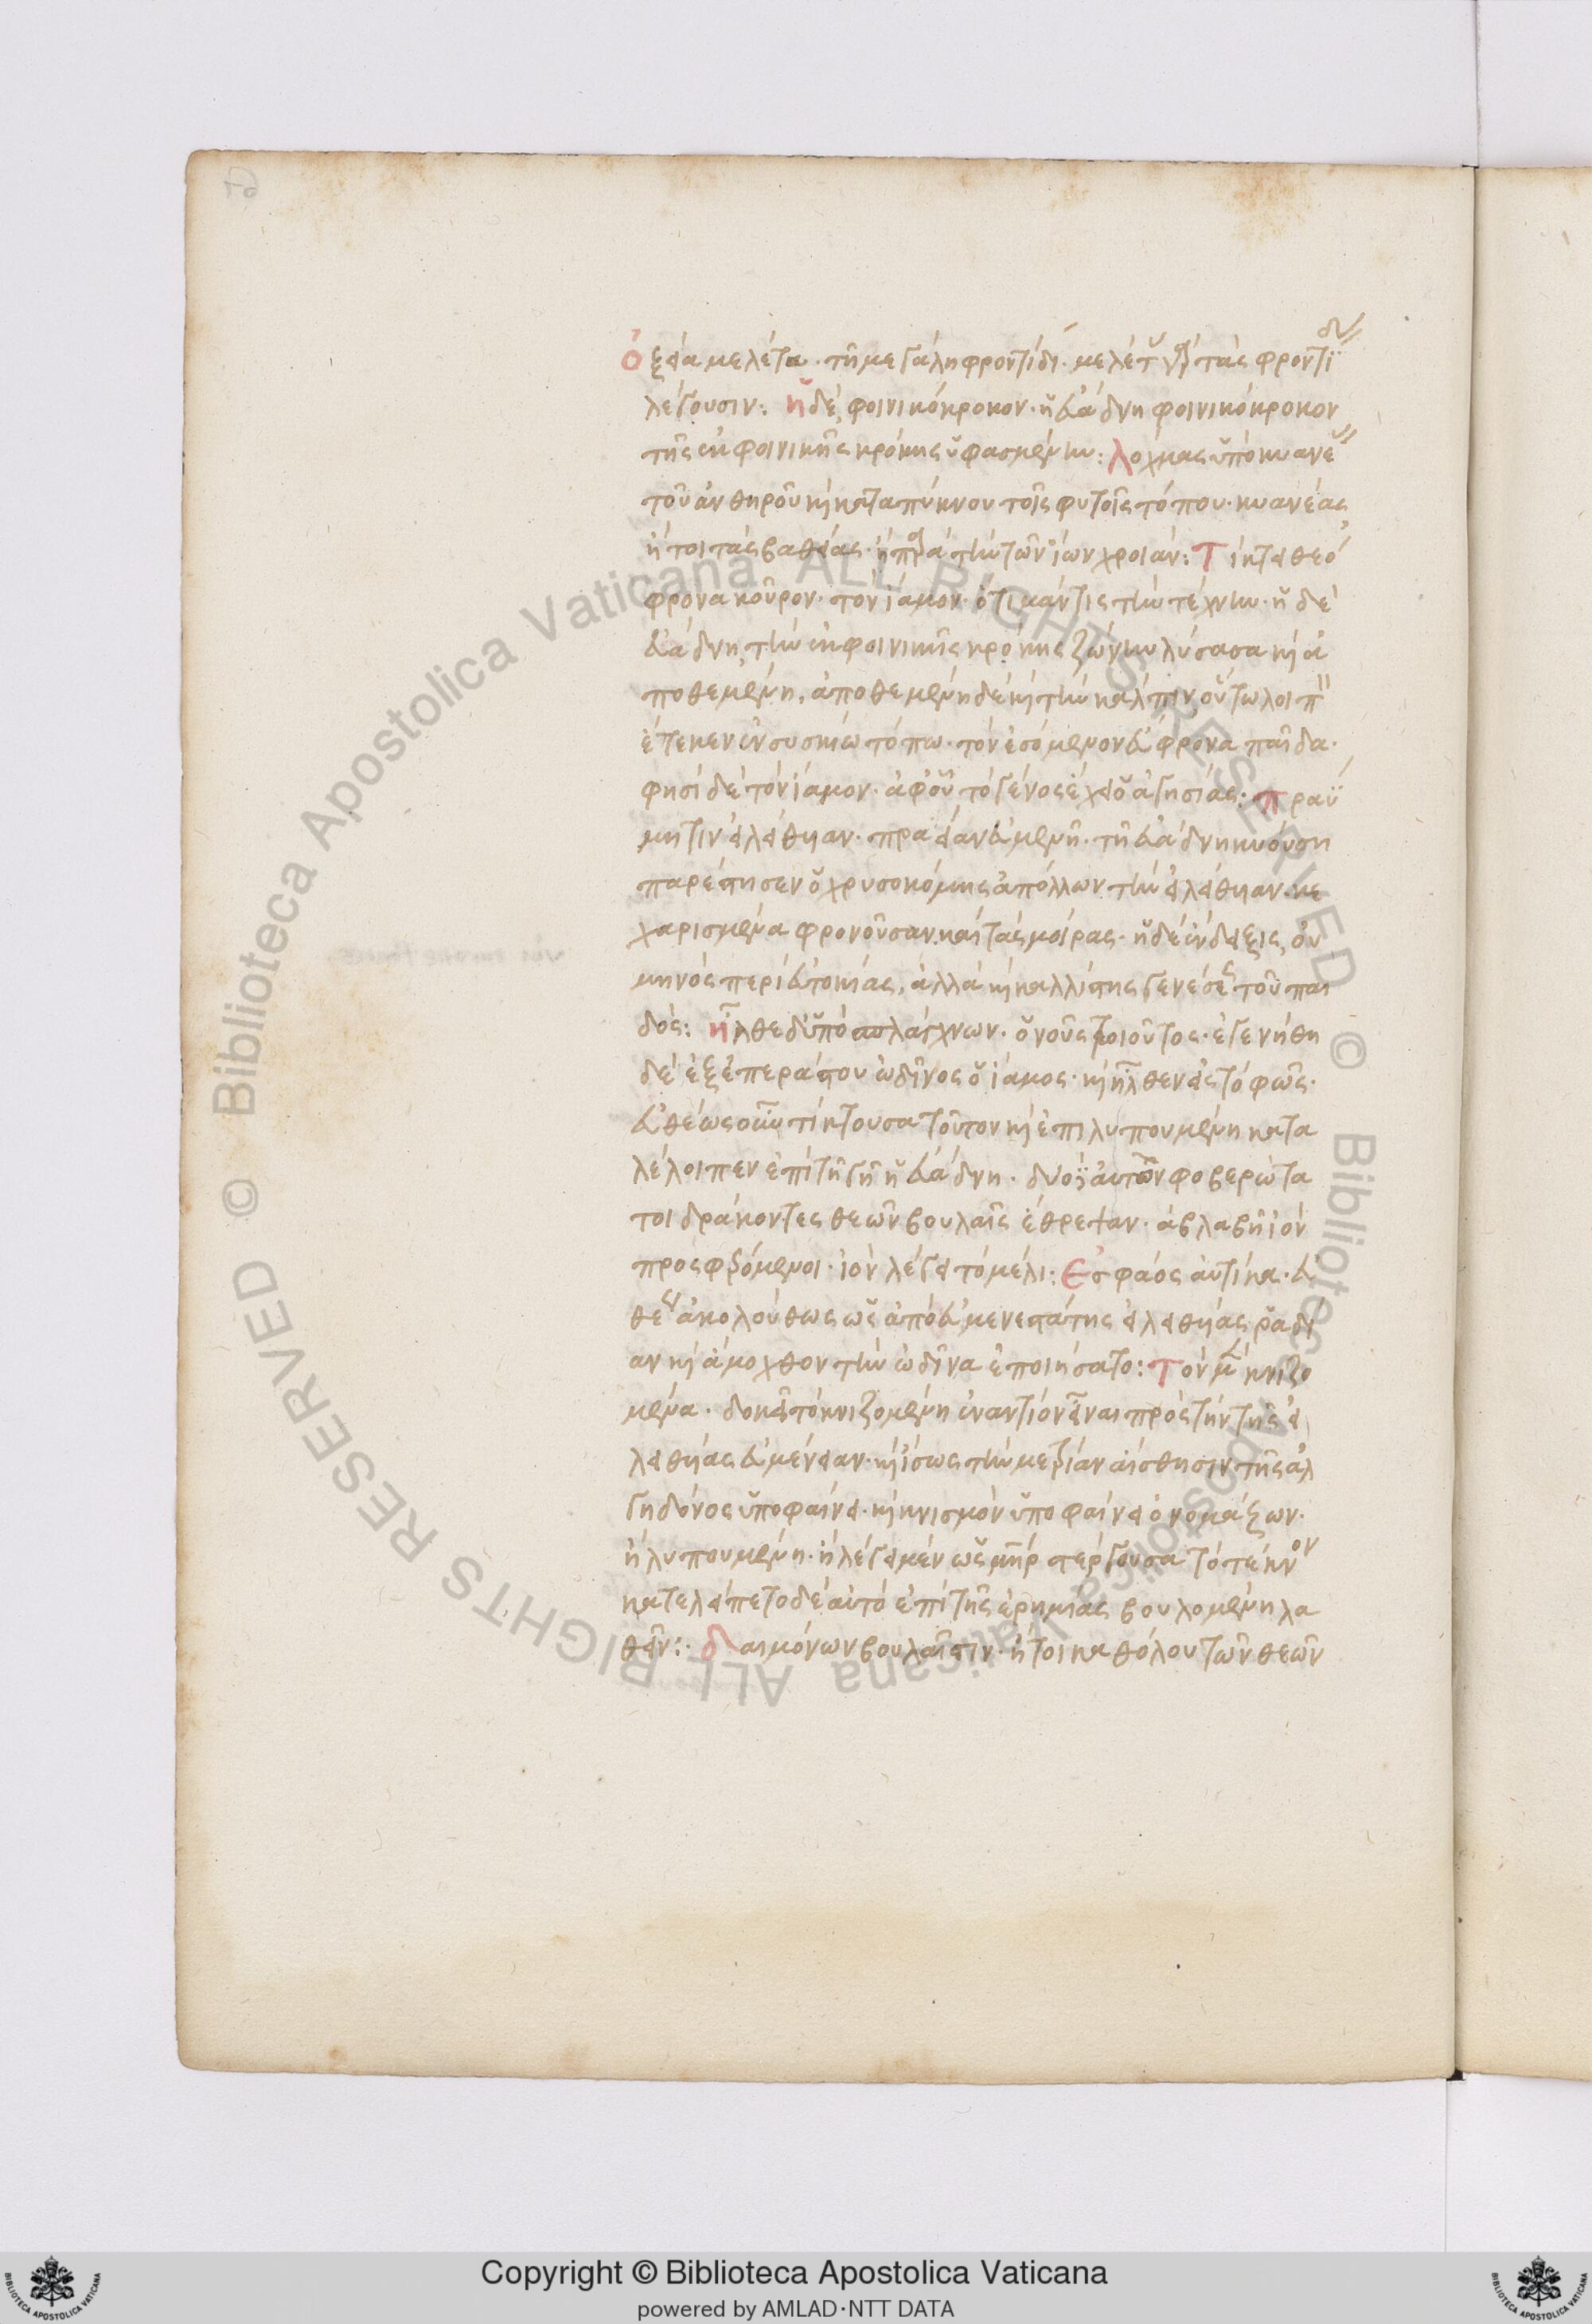 ὀξεία μελέτα· τῆ μεγάλη φροντίδι· μελέτας γὰρ τὰς φροντίδας
λέγουσιν: ἡ δὲ φοινικόκροκον· ἡ εὐάδνη φοινικόκροκον
τῆς ἐκ φοινικῆς κρόκης ὑφασμένην: λόχμας ὑπὸ κυανέας
τοῦ ἀνθηροῦ καὶ καταπύκνου τοῖς φυτοῖς τόπου· κυανέας
ἤτοι τὰς βαθείας· ἢ παρὰ τὴν τῶν ἴων χροιάν: Τίκτε θεό
φρονα κοῦρον· τὸν ἴαμον· ὅτι μάντις τὴν τέχνην· ἡ δὲ
εὐάδνη, τὴν ἐκ φοινικῆς κρόκης ζώνην λύσασα καὶ ἀ
ποθεμένη, ἀποθεμένη δὲ καὶ τὴν κάλπιν οὕτω λοιπὸν
ἔτεκεν ἐν συσκίω τόπω· τὸν ἐσόμενον εὔφρονα παῖδα·
φησὶ δὲ τὸν ἴαμον· ἀφ' οὗ τὸ γένος ἔχει ὁ ἀγησίας: πραΰ
μητιν ἐλείθυιαν· πραεῖαν εὐμενῆ· τῆ εὐάδνη κυούση
παρέστησεν ὁ χρυσοκόμης ἀπόλλων τὴν ἐλείθυιαν· κε
χαρισμένα φρονοῦσαν καὶ τὰς μοίρας· ἡ δὲ ἔνδειξις, οὐ
μηνὸς περὶ εὐτοκίας, ἀλλὰ καὶ καλλίστης γενέσεως τοῦ παι
δός: ἦλθε δ' ὑπὸ σπλάγχνων· ὁ νοῦς τοιοῦτος· ἐγενήθη
δὲ ἐξ ἐπεράστου ὠδῖνος ὁ ἴαμος· καὶ ἦλθεν εἰς τὸ φῶς·
εὐθέως οὖν τίκτουσα τοῦτον καὶ ἐπιλυπουμένη κατα
λέλοιπεν ἐπὶ τῆ γῆ ἡ εὐάδνη· δύο δὲ αὐτὸν φοβερώτα
τοι δράκοντες θεῶν βουλαῖς ἔθρεψαν· ἀβλαβῆ ἰὸν
προσφερόμενοι· ἰὸν λέγει τὸ μέλι: Ἐς φάος αὐτίκα· εὐ
θέως ἀκολούθως ὡς ἀπὸ εὐμενεστάτης ἐλειθυίας ῥαδί
αν καὶ ἄμοχθον τὴν ὠδῖνα ἐποιήσατο: Τὸν μὲν κνιζο
μένα· δοκεῖ τὸ κνιζομένη ἐναντίον εἶναι πρὸς τὴν τῆς ἐ
λειθυίας εὐμένειαν· καὶ ἴσως τὴν μετρίαν αἴσθησιν τῆς ἀλ
γηδόνος ὑποφαίνει· καὶ κνισμὸν ὑποφαίνει ὀνομάζων·
ἢ λυπουμένη· ἢ λέγει μὲν ὡς μήτηρ στέργουσα τὸ τέκνον
κατελείπετο δὲ αὐτὸ ἐπὶ τῆς ἐρημίας βουλομένη λα
θεῖν: δαιμόνων βουλαῖσιν· ἤτοι καθόλου τῶν θεῶν
Copyright © Biblioteca Apostolica Vaticana
powered by AMLAD·NTT DATA
Biblioteca Apostolica Vaticana ALL RIGHTS RESERVED © Biblioteca Apostolica Vaticana ALL RIGHTS RESERVED ©